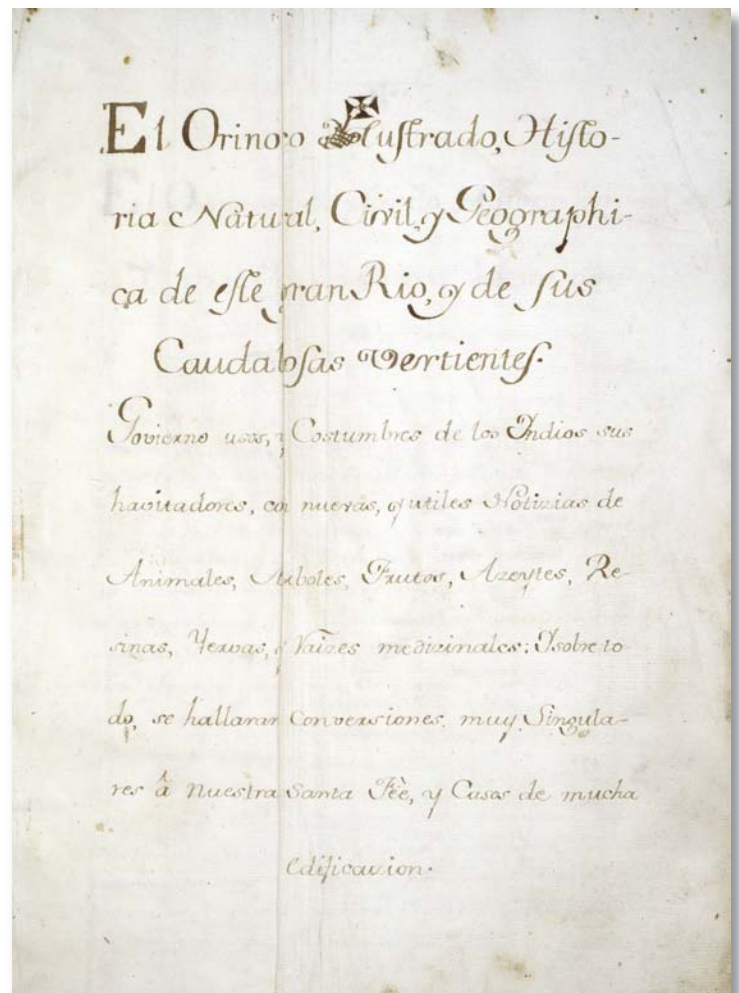 El Orinoco Ilustrado, Histo-
ria Natural, Civil, y Geographi-
ca de este gran Rio, y de sus
Caudalosas Vertientes.
Govierno usos, y Costumbres de los Indios sus
havitadores, con nuevas, y utiles Notizias de
Animales, Arboles, Frutos, Azeytes, Re-
sinas, Yervas, y Raizes medizinales: Y sobre to-
do, se hallaran Conversiones muy Singula-
res â nuestra Santa Fèe, y Casos de mucha
edificazion.